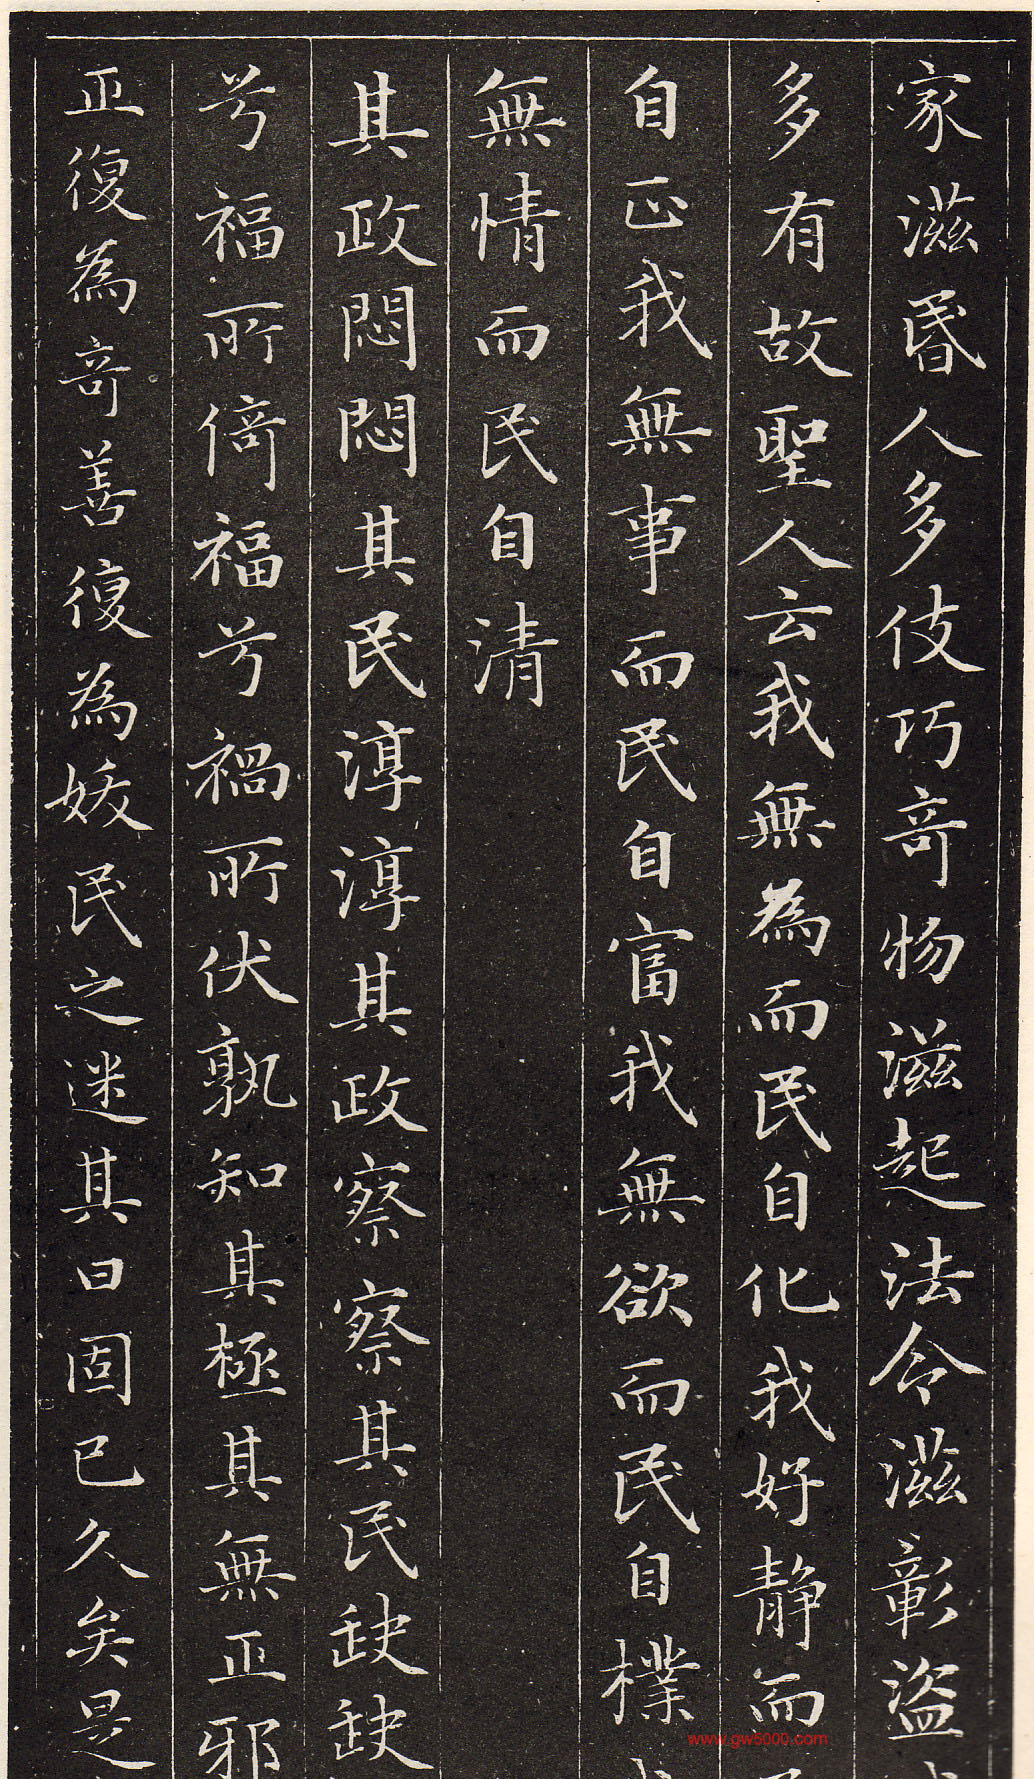 家滋昬人多伎巧竒物滋起法令滋彰盜
多有故聖人云我無為而民自化我好靜而
自正我無事而民自富我無欲而民自樸
無情而民自清
其政悶悶其民淳淳其政察察其民缺缺
兮福所倚福兮禍所伏孰知其極其無正邪
正復為竒善復為妖民之迷其日固已久矣是
www.gw5000.com